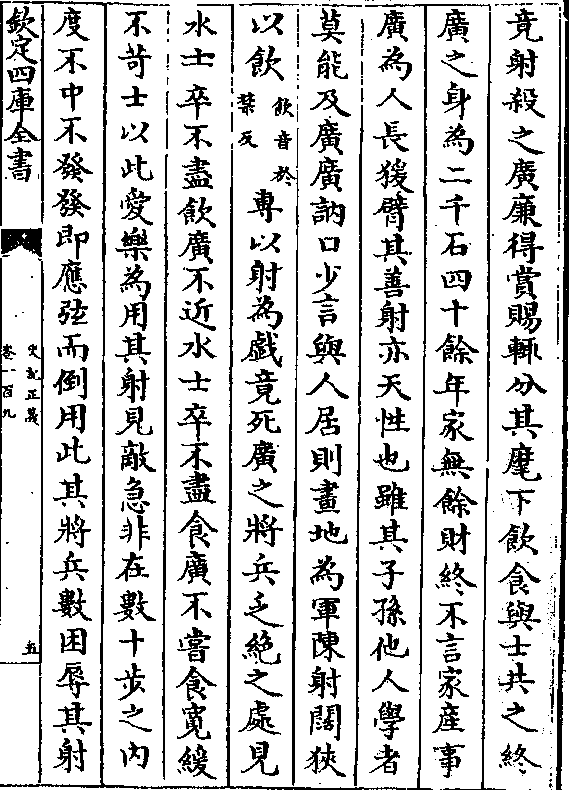 竟射殺之廣廉得賞賜輒分其麾下飲食與士共之終
廣之身為二千石四十餘年家無餘財終不言家産事
廣為人長猨臂其善射亦天性也雖其子孫他人學者
莫能及廣廣訥口少言與人居則畫地為軍陳射闊狹
以飲飲音於禁反専以射為戲竟死廣之將兵乏絶之處見
水士卒不盡飲廣不近水士卒不盡食廣不嘗食寛緩
不苛士以此愛樂為用其射見敵急非在數十步之内
度不中不發發即應弦而倒用此其將兵數困辱其射
欽定四庫全書
史記正義
卷一百九
五